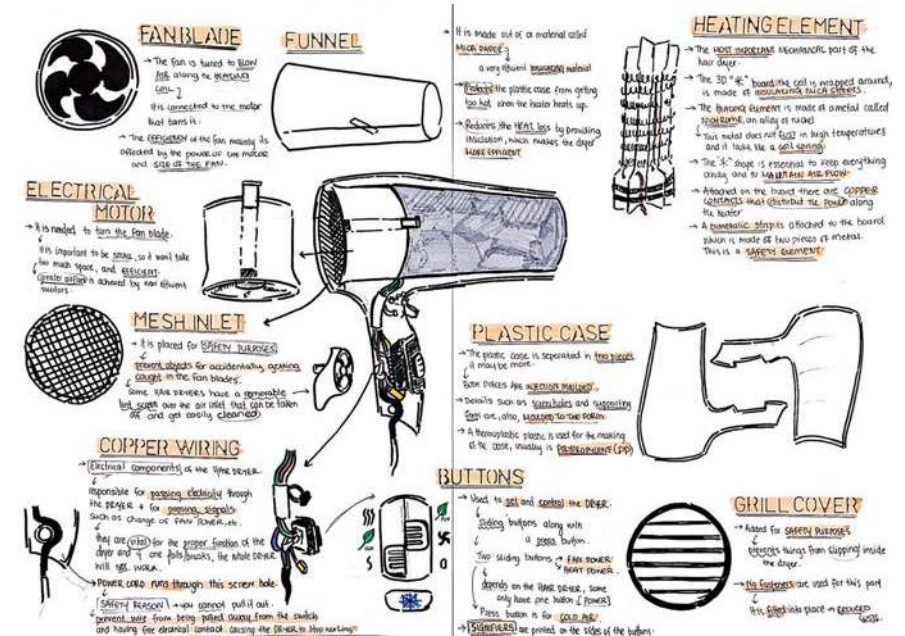 FAN BLADE
→ The fan is tuned to BLOW
AIR along the HEATING
COIL
It is connected to the motor
that turns it.
→ The EFFICIENCY of the fan mainly is
affected by the power of the motor
and SIZE OF THE FAN.
FUNNEL
→ It is made out of a material called
MICA PAPER
a very efficient insulating material
→ Protects the plastic case from getting
too hot when the heater heats up.
→ Reduces the HEAT loss by providing
insulation, which makes the dryer
MORE EFFICIENT
HEATING ELEMENT
→ The MOST IMPORTANT MECHANICAL part of the
hair dryer.
→ The 3D "*" board the coil is wrapped around,
is made of INSULATING MICA SHEETS.
→ The HEATING ELEMENT is made of a metal called
NICHROME, an alloy of nickel
This metal does not RUST in high temperatures
and it looks like a coil spring
→ The "*" shape is essential to keep everything
and to MAINTAIN AIR FLOW
→ Attached on the board there are COPPER
CONTACTS that distribute the POWER along
the heater
→ A bimetallic strip is attached to the board
which is made of two pieces of metal.
This is a SAFETY ELEMENT
ELECTRICAL
MOTOR
→ It is needed to turn the fan blade.
It is important to be SMALL, so it won't take
too much space, and EFFICIENT.
Greater airflow is achieved by more efficient
motors.
MESH INLET
→ It is placed for SAFETY PURPOSES
prevent objects for accidentally getting
caught in the fan blades.
Some HAIR DRYERS have a removable
lint screen over the air inlet that can be taken
off and get easily cleaned
PLASTIC CASE
→ The plastic case is seperated in two pieces
it may be more.
Both PIECES ARE INJECTION MOULDED.
→ Details such as screw holes and supporting
are, also, MOULDED TO THE FORM
→ A thermoplastic plastic is used for the making
of the case, usually is POLYPROPYLENE (PP)
COPPER WIRING
→ Electrical components of the HAIR DRYER.
responsible for passing electricity through
the DRYER & for passing signals
such as change of FAN POWER, etc.
they are vital for the proper function of the
dryer and if one fails/breaks, the whole DRYER
will not work.
→ POWER CORD runs through this screw hole.
SAFETY REASON → you cannot pull it out.
prevent wire from being pulled away from the switch
and having free electrical contact causing the DRYER to stop working
BUTTONS
→ Used to set and control the DRYER.
Sliding buttons along with
a press button.
Two sliding buttons → FAN POWER
HEAT POWER.
depends on the HAIR DRYER, some
only have one button (POWER)
Press button is for COLD AIR.
→ SIGNIFIERS are printed on the sides of the buttons.
GRILL COVER
→ Added for SAFETY PURPOSES
prevents things from slipping inside
the dryer.
→ No fasteners are used for this part
It is fitted into place →